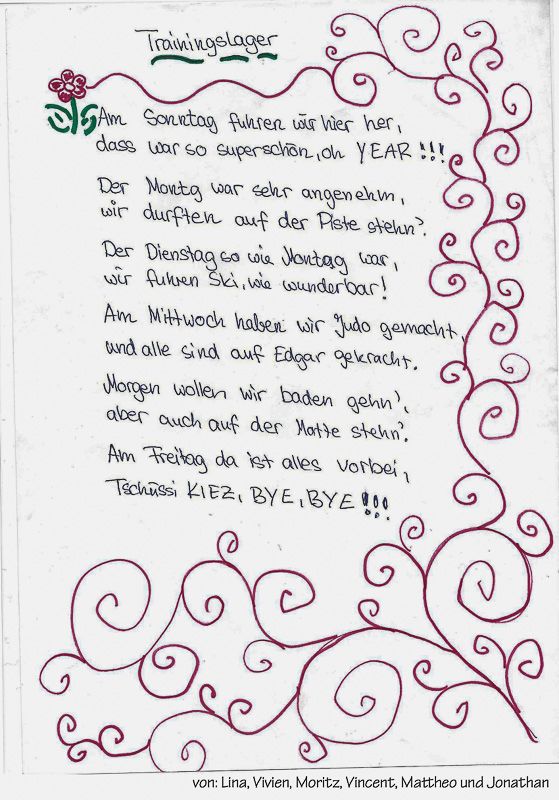 Trainingslager
Am Sonntag fuhren wir hier her,
dass war so superschön, oh YEAR !!!
Der Montg war sehr angenehm,
wir durften auf der Piste stehn'.
Der Dienstag so wie Montag war,
wir fuhren Ski, wie wunderbar!
Am Mittwoch haben wir Judo gemacht,
und alle sind auf Edgar gekracht.
Morgen wollen wir baden gehn',
aber auch auf der Matte stehn'.
Am Freitag da ist alles vorbei,
Tschüssi KIEZ, BYE, BYE !!!
von: Lina, Vivien, Moritz, Vincent, Mattheo und Jonathan